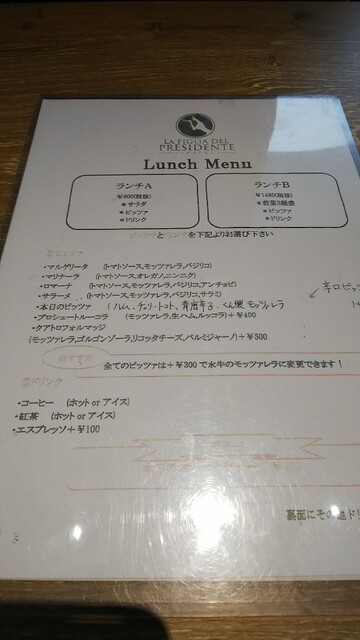 LA FIGLIA DEL
PRESIDENTE
Lunch Menu
ランチA
¥900(税抜)
＊サラダ
＊ピッツァ
＊ドリンク
ランチB
¥1480(税抜)
＊前菜3種盛
＊ピッツァ
＊ドリンク
ピッツァとドリンクを下記よりお選び下さい
①ピッツァ
・マルゲリータ (トマトソース,モッツァレラ,バジリコ)
・マリナーラ (トマトソース,オレガノ,ニンニク)
・ロマーナ (トマトソース,モッツァレラ,バジリコ,アンチョビ)
・サラーメ (トマトソース,モッツァレラ,バジリコ,サラミ)
・本日のピッツァ (ハム、チェリートマト、青唐辛子、くん製モッツァレラ
辛口ピッ
・プロシュートルーコラ (モッツァレラ,生ハム,ルッコラ)＋¥400
・クアトロフォルマッジ
(モッツァレラ,ゴルゴンゾーラ,リコッタチーズ,パルミジャーノ)＋¥500
おすすめ 全てのピッツァは＋¥300で水牛のモッツァレラに変更できます！
②ドリンク
・コーヒー (ホット or アイス)
・紅茶 (ホット or アイス)
・エスプレッソ＋¥100
裏面にその他ド